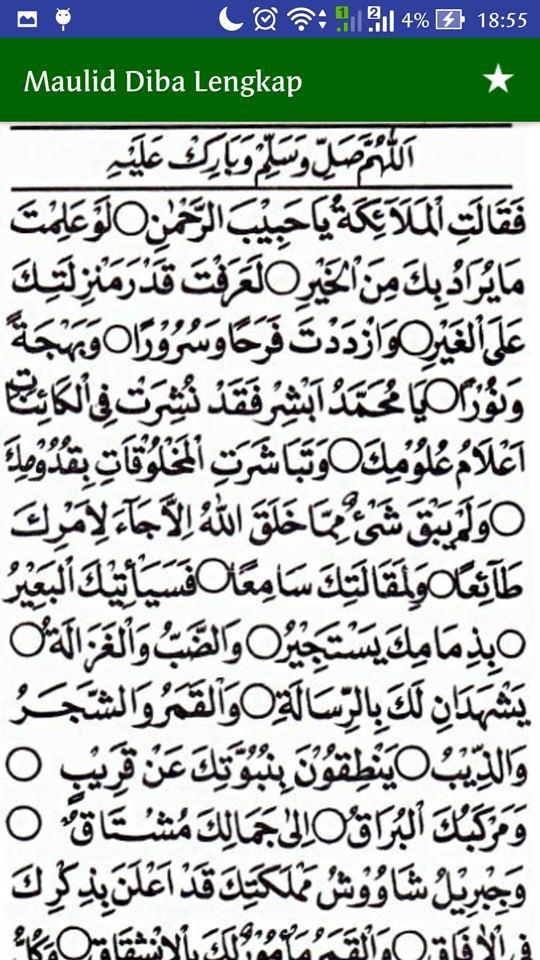 4% 18:55
Maulid Diba Lengkap
اَللّٰهُمَّ صَلِّ وَسَلِّمْ وَبَارِكْ عَلَيْهِ
فَقَالَتِ الْمَلَآئِكَةُ يَا حَبِيْبَ الرَّحْمٰنِ ○ لَوْ عَلِمْتَ
مَا يُرَادُ بِكَ مِنَ الْخَيْرِ ○ لَعَرَفْتَ قَدْرَ مَنْزِلَتِكَ
عَلَى الْغَيْرِ ○ وَازْدَدْتَ فَرَحًا وَسُرُوْرًا ○ وَبَهْجَةً
وَنُوْرًا ○ يَا مُحَمَّدُ اَبْشِرْ فَقَدْ نُشِرَتْ فِى الْكَائِنَاتِ
اَعْلَامُ عُلُوْمِكَ ○ وَتَبَاشَرَتِ الْمَخْلُوْقَاتِ بِقُدُوْمِكَ
○ وَلَمْ يَبْقَ شَىْءٌ مِمَّا خَلَقَ اللهُ اِلَّا جَآءَ لِاَمْرِكَ
طَآئِعًا ○ وَلِمَقَالَتِكَ سَامِعًا ○ فَسَيَأْتِيْكَ الْبَعِيْرُ
○ بِذِمَامِكَ يَسْتَجِيْرُ ○ وَالضَّبُّ وَالْغَزَالَةُ ○
يَشْهَدَانِ لَكَ بِالرِّسَالَةِ ○ وَالْقَمَرُ وَالشَّجَرُ
وَالذِّيْبُ ○ يَنْطِقُوْنَ بِنُبُوَّتِكَ عَنْ قَرِيْبٍ ○
وَمَرْكَبُكَ الْبُرَاقُ ○ اِلٰى جَمَالِكَ مُشْتَاقٌ ○
وَجِبْرِيْلُ شَاوُوْشُ مَمْلَكَتِكَ قَدْ اَعْلَنَ بِذِكْرِكَ
فِى الْاٰفَاقِ ○ وَالْقَمَرُ مَأْمُوْرٌ لَكَ بِالْاِنْشِقَاقِ ○ وَكُلُّ